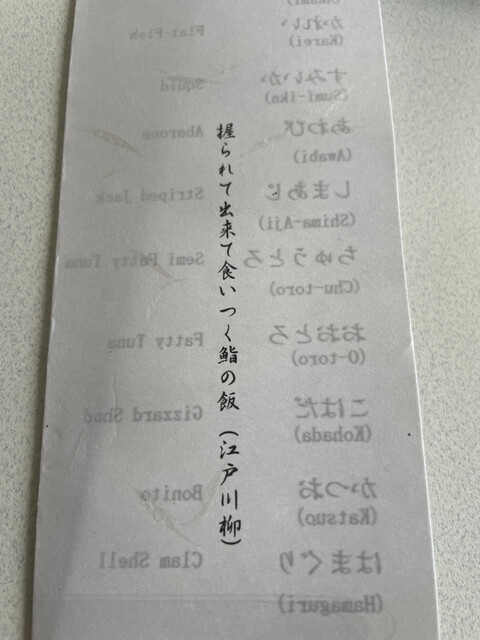 握られて出来て食いつく鮨の飯(江戸川柳)
かれい Flat Fish
(Karei)
すみいか Squid
(Sumi-ika)
あわび Abarone
(Awabi)
しまあじ Striped Jack
(Shima-Aji)
ちゅうとろ Semi Fatty Tuna
(Chu-toro)
おおとろ Fatty Tuna
(O-toro)
こはだ Gizzard Shud
(Kohada)
かつお Bonito
(Katsuo)
はまぐり Clam Shell
(Hamaguri)